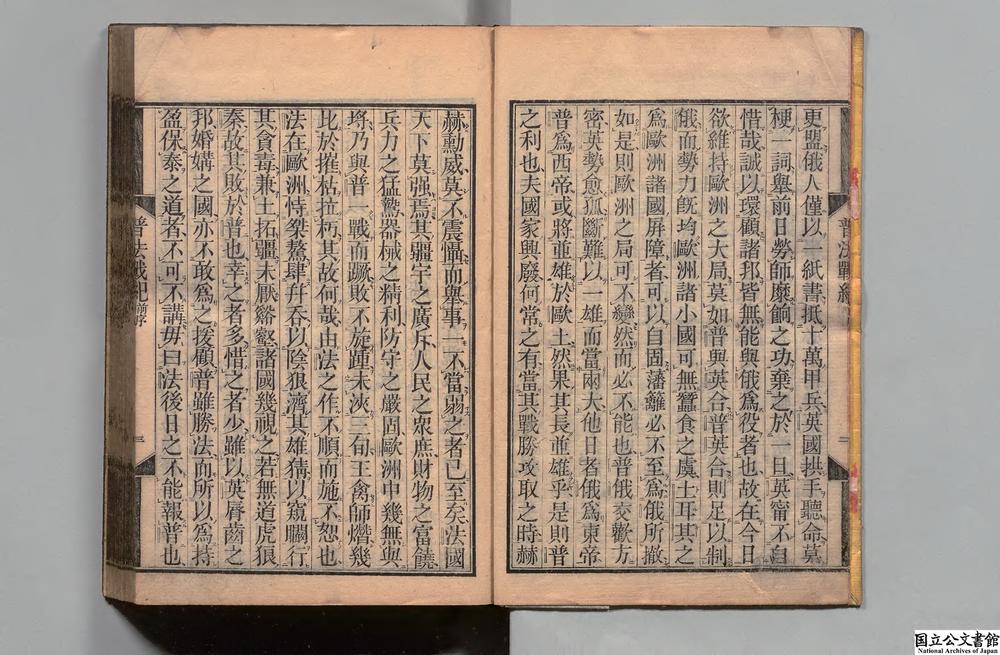 普法戰紀
二
更盟俄人僅以一紙書抵十萬甲兵英國拱手聽命莫
梗一詞舉前日勞師縻餉之功棄之於一旦英甯不自
惜哉誠以環顧諸邦皆無能與俄爲役者也故在今日
欲維持歐洲之大局莫如普與英合普英合則足以制
俄而勢力旣均歐洲諸小國可無蠶食之虞土耳其之
爲歐洲諸國屏障者可以自固藩籬必不至爲俄所撤
如是則歐洲之局可不變然而必不能也普俄交歡方
密英勢愈孤斷難以一雄而當兩大他日者俄爲東帝
普爲西帝或將並雄於歐土然果其長並雄乎是則普
之利也夫國家興廢何常之有當其戰勝攻取之時赫
赫勳威莫不震懾而舉事一不當弱之者已至矣法國
天下莫强焉其疆宇之廣斥人民之衆庶財物之富饒
兵力之猛鷙器械之精利防守之嚴固歐洲中幾無與
埒乃與普一戰而蹶敗不旋踵未浹三旬王禽師熸幾
比於摧枯拉朽其故何哉由法之作不順而施不恕也
法在歐洲恃桀驁肆幷吞以陰狠濟其雄猜以窺瞯行
其貪毒兼土拓疆未厭谿壑諸國幾視之若無道虎狼
秦故其敗於普也幸之者多惜之者少雖以英脣齒之
邦婚媾之國亦不敢爲之援顧普雖勝法而所以爲持
盈保泰之道者不可不講毋曰法後日之不能報普也
普法戰紀 前序
三
国立公文書館
National Archives of Japan